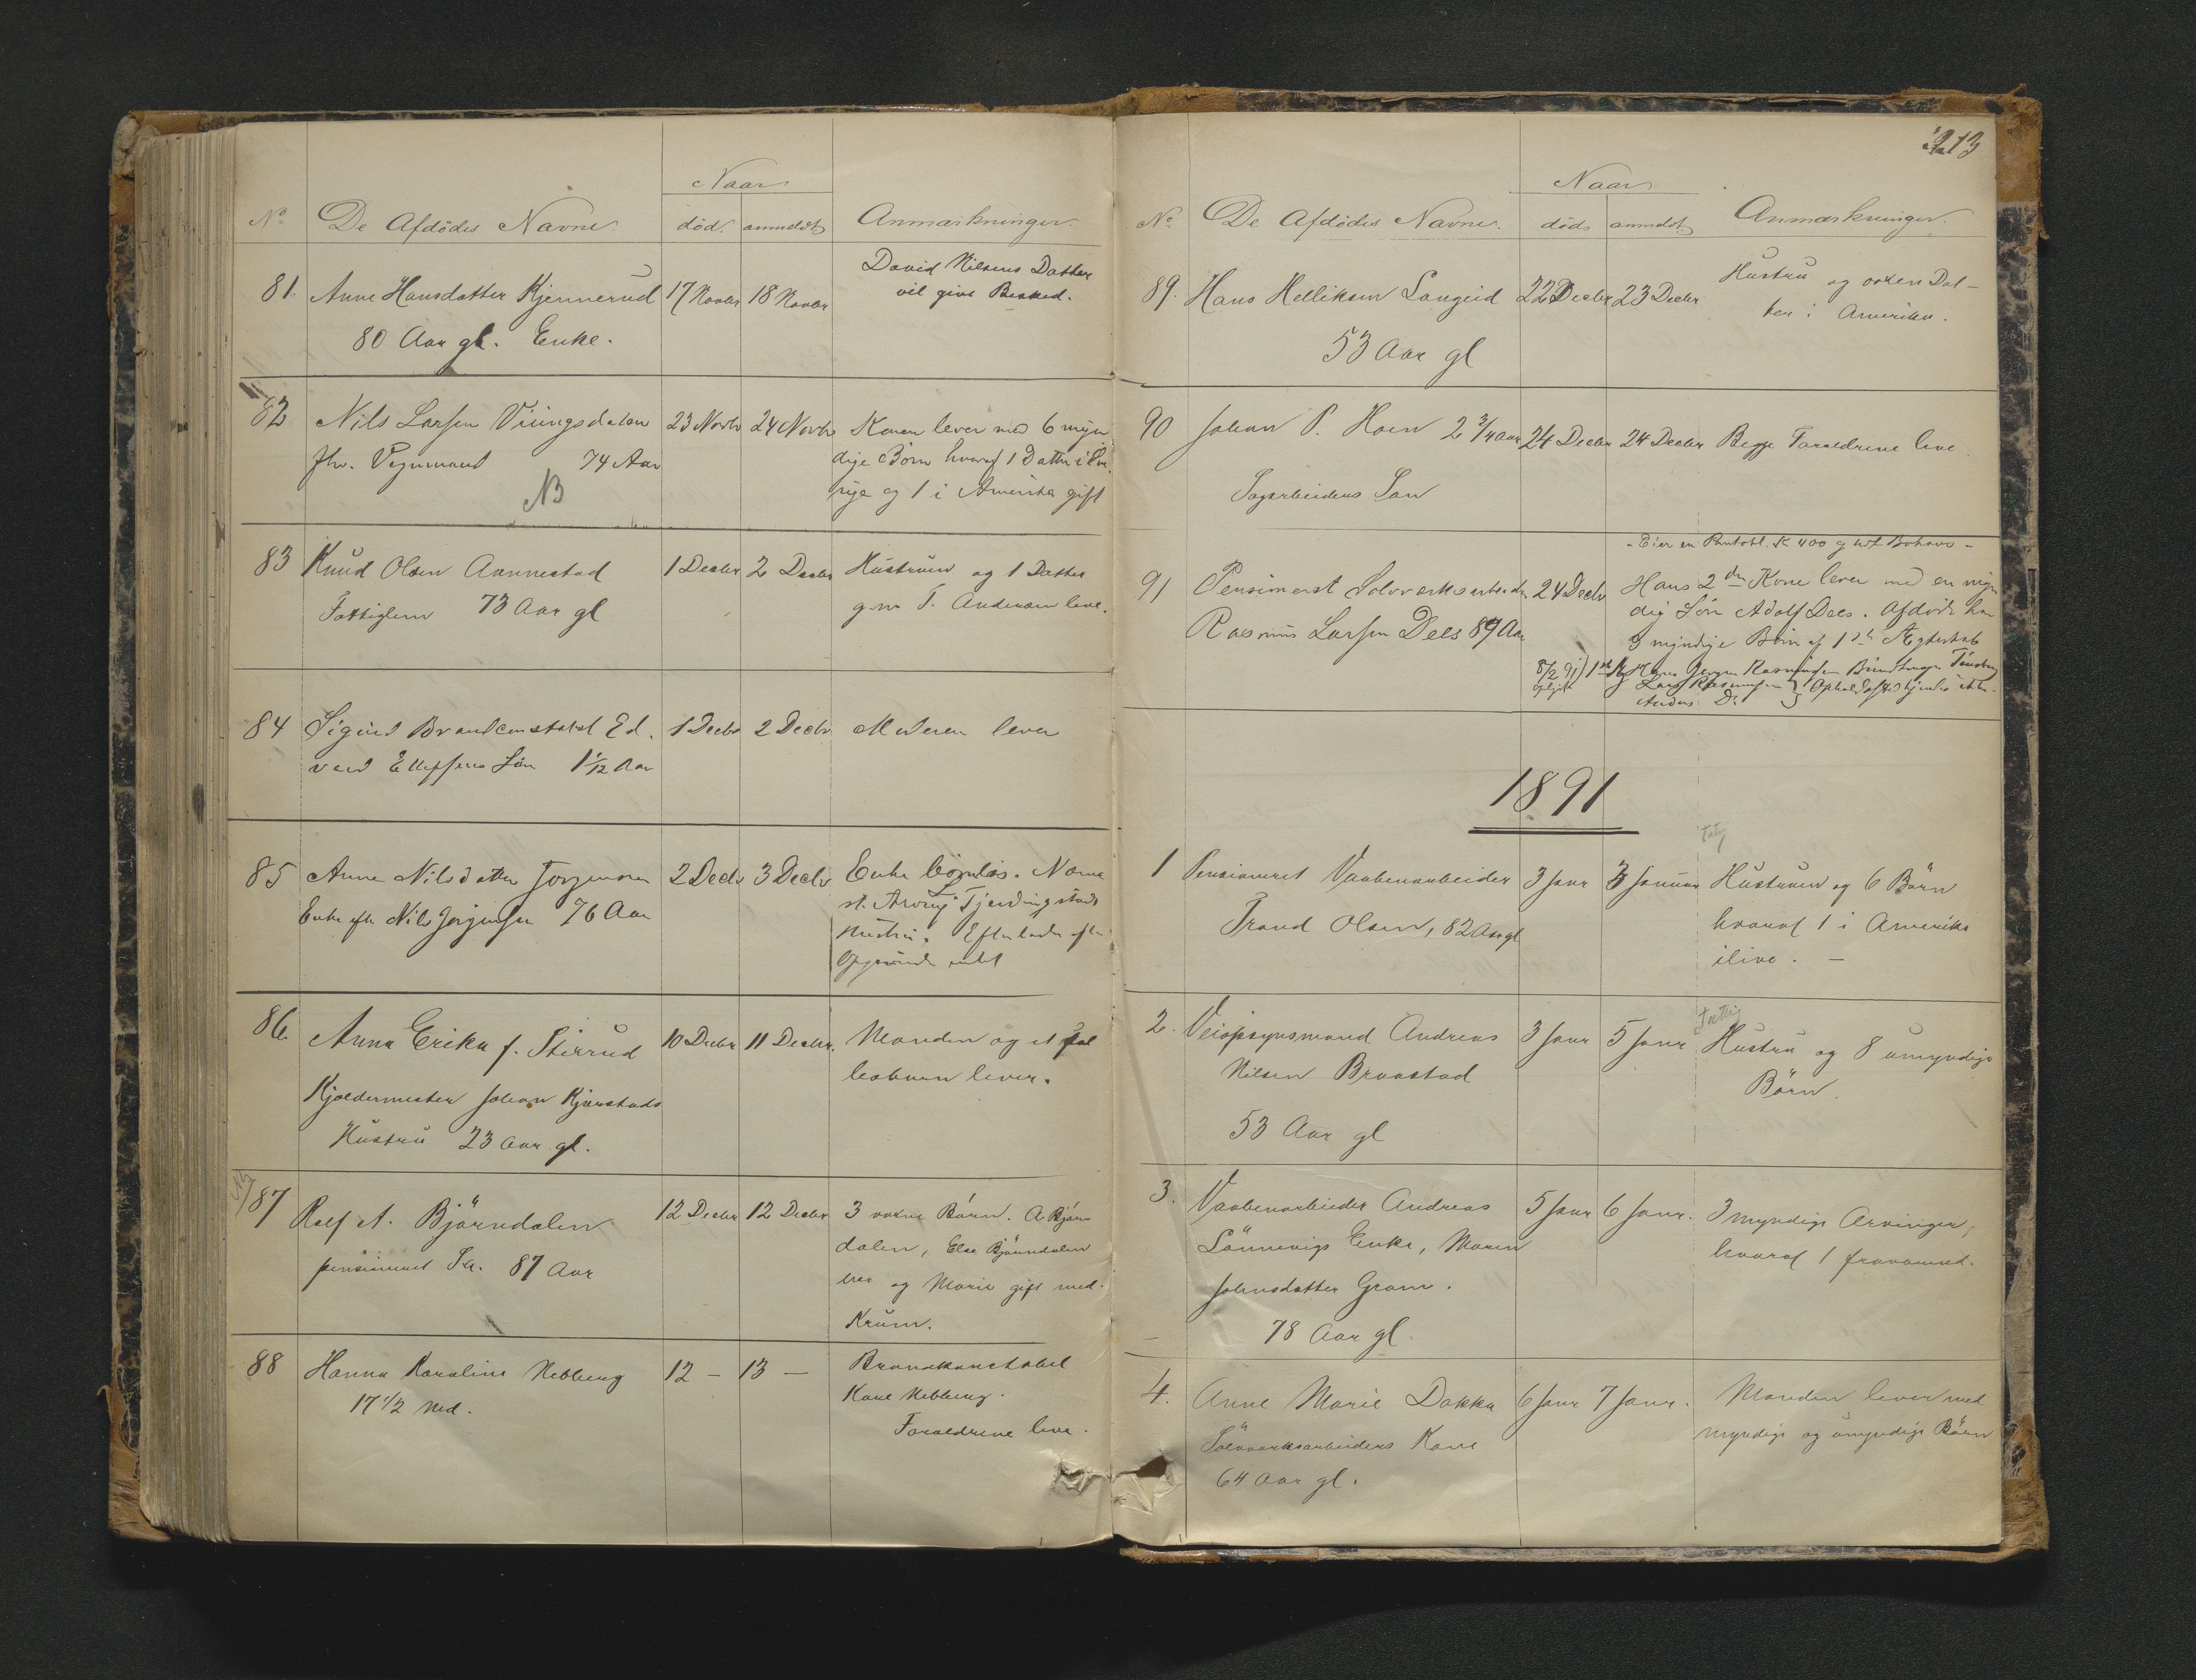 Naar
No De Afdødes Navne død. anmeldt Anmærkninger.
81. Anne Hansdatter Kjennerud 17 Novbr 18 Novbr David Nilsens Datter
80 Aar gl. Enke. vil give Besked.
82 Nils Larsen Viingsdalen 23 Novbr 24 Novbr Konen lever med 6 myn
fhv. Vognmand 74 Aar dige Börn hvoraf 1 Datter i
NB og 1 i Amerika gift
83 Knud Olsen Aannestad 1 Decbr 2 Decbr Hustruen og 1 Datter
Fattiglem 73 Aar gl g. m. T. Andersen leve.
84 Sigurd Brandconstabel Ed. 1 Decbr 2 Decbr Moderen lever
vard Ellefsens Sön 1 1/12 Aar
85 Anne Nilsdatter Jorgensen 2 Decbr 3 Decbr Enke börnlös.
Enke efter Nils Jörgensen 76 Aar st. Arving Fjerdingstads
Hustru. Efterlader efter
Opgivende intet
86 Anna Erika f. Stirrud 10 Decbr 11 Decbr. Manden og et
Kjeldermester Johan Kjørstads lever.
Hustru 23 Aar gl.
87 Rolf A. Björndalen 12 Decbr 12 Decbr 3 voxne Børn. A. Bjørn
pensioneret 87 Aar dalen, Else Björndalen
her og Marie gift med
Krum.
88 Hanna Karoline Nebberg 12 – 13 – Brandkonstabel
17 1/2 Md. Kone Nebberg.
Forældrene leve.
213
Naar
No De Afdødes Navne. døde anmeldt. Anmærkninger.
89. Hans Helliksen Langeid 22 Decbr 23 Decbr Hustru og voxen Dat-
53 Aar gl ter i Amerika.
90 Johan P. Hoen 2 3/4 Aar 24 Decbr 24 Decbr Begge Forældrene leve.
Sagarbeiders Søn
- Eier en Pantobl. K 400 og lidt Bohave -
91 Pensioneret Sølvverksarbeider 24 Decbr Hans 2den Kone lever med en myn
Rasmus Larsen Dees 89 Aar dig Sön Adolf Dees. Afdöde har
3 myndige Börn af 1ste Ægteskab
8/2 91) Hans Jørgen Rasmussen Tønsberg
Lars Rasmussen } Opholdssted kjendes ikke.
Anders Do
1891
1 Pensioneret Vaabenarbeider 3 Janr 3 Januar Hustruen og 6 Börn
Trond Olsen, 82 Aar gl hvoraf 1 i Amerika
ilive. –
fattig
2. Veiopsynsmand Andreas 3 Janr 5 Janr Hustru og 8 umyndige
Nilsen Braastad Börn.
53 Aar gl
3. Vaabenarbeider Andreas 5 Janr 6 Janr. 3 myndige Arvinger,
Lönnevigs Enke, Maren hvoraf 1 fraværend.
Johnsdatter Gram.
78 Aar gl.
4. Anne Marie Dokka 6 Janr 7 Janr. Manden lever med
Sölvverksarbeiders Kone myndige og umyndige Börn
64 Aar gl.